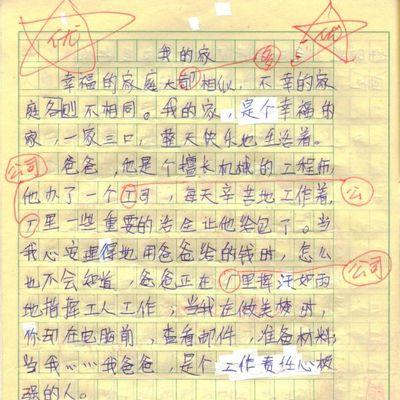 优
优
我的家
多
幸福的家庭大都相似，不幸的家
庭各则不相同。我的家，是个幸福的
家，一家三口，整天快乐地生活着。
公司
爸爸，他是个擅长机械的工程师，
他办了一个工司，每天辛苦地工作着，
公
厂里一些重要的活全让他给包了。当
我心安理得地用爸爸给的钱时，怎么
公司
也不会知道，爸爸正在厂里挥汗如雨
地指挥工人工作；当我在做美梦时，
你却在电脑前，查看邮件，准备材料；
当我……我爸爸，是个工作责任心极
强的人。